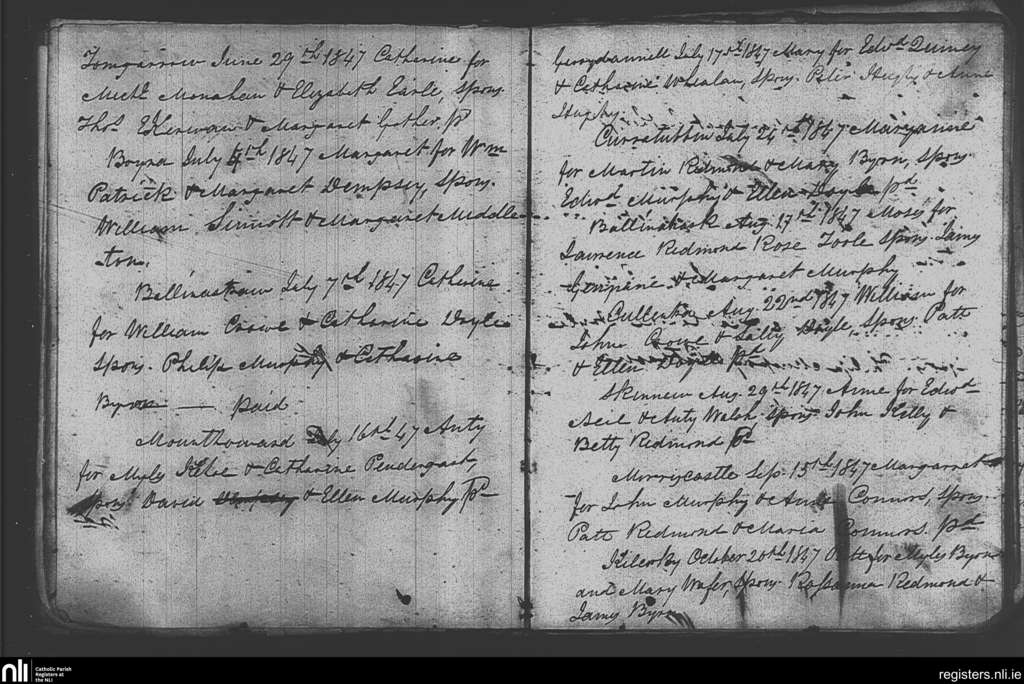 Tomgarrow June 29th 1847 Catherine for
Michl Monahan & Elizabeth Earle, Spons.
Thos & Margaret pd
Boyra July 4th 1847 Margaret for Wm
Patrick & Margaret Dempsey, Spons.
William Sinnott & Margaret Middle-
ton.
Ballinastraw July 7th 1847 Catherine
for William Crowe & Catharine Doyle
Spons. Philip Murphy & Catharine
Byron — paid
Mounthoward July 16th 47 Anty
for Myles & Catharine Pendergast,
Spons. David & Ellen Murphy pd
July 17th 1847 Mary for Edwd Quinsey
& Catharine Whealan, Spons. Peter Hughy & Anne
Hughy
July 24th 1847 Maryanne
for Martin Redmond & Mary Byrn, Spons
Edwd Murphy & Ellen Doyle pd
Aug. 17th 1847 Moses for
Lawrence Redmond Rose Toole Spons. James
& Margaret Murphy
Cullenton Aug 22nd 1847 William for
John Crowe & Sally Doyle, Spons Patt
& Ellen Doyle pd
Skinnew Aug. 29th 1847 Anne for Edwd
Neil & Anty Walsh, Spons. John Kelly &
Betty Redmond pd
Morriscastle Sep. 15th 1847 Margarret
for John Murphy & Connors, Spons.
Patt Redmond & Maria Connors. pd
October 20th 1847 Patt for Myles Byrn
and Mary Wafer, Spons. Rossanna Redmond &
James Byrn
nli
Catholic Parish
Registers at
the NLI
registers.nli.ie